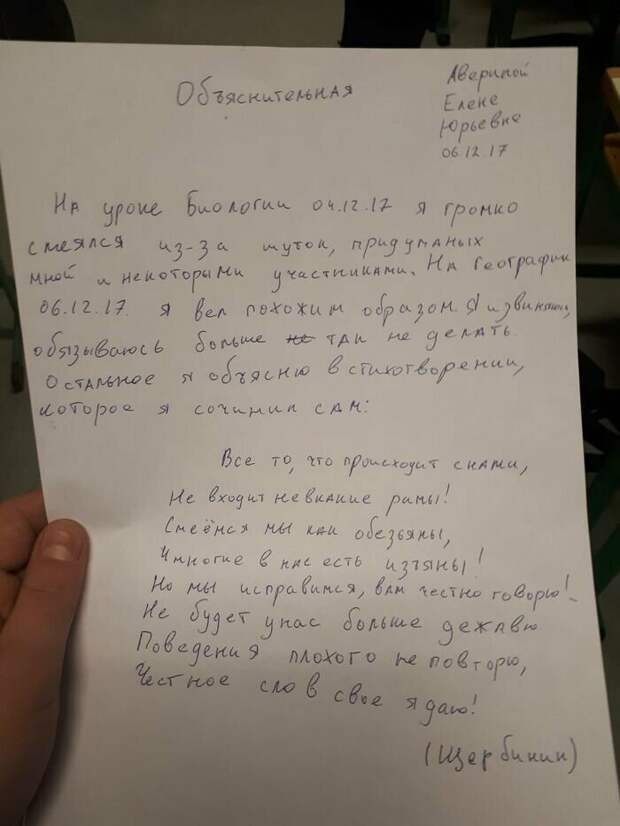 Объяснительная
Авериной
Елене
Юрьевне
06.12.17
На уроке Биологии 04.12.17 я громко
смеялся из-за шуток, придуманых
мной и некоторыми участниками. На Географии
06.12.17. я вел похожим образом. Я извиняюсь,
обязываюсь больше не так не делать.
Остальное я объясню в стихотворении,
которое я сочинил сам:
Все то, что происходит снами,
Не входит невкакие рамы!
Смеёмся мы как обезьяны,
И многие в нас есть изъяны!
Но мы исправимся, вам честно говорю!
Не будет унас больше дежавю.
Поведения плохого не повторю,
Честное слов свое я даю!
(Щербинин)